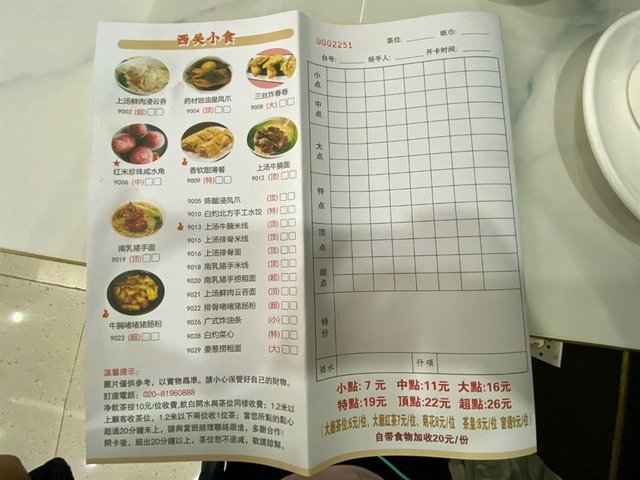 西关小食
上汤鲜肉浸云吞
9002 (超)
药材豉油皇凤爪
9004 (顶)
三丝炸春卷
9008 (大)
红米珍珠咸水角
9006 (中)
香软甜薄餐
9009 (特)
上汤牛腩面
9012 (顶)
南乳猪手面
9019 (顶)
牛腩啫啫猪肠粉
9023 (超)
9005 陈醋浸凤爪 (顶)
9010 白灼北方手工水饺 (特)
9013 上汤牛腩米线 (顶)
9015 上汤排骨米线 (顶)
9016 上汤排骨面 (顶)
9018 南乳猪手米线 (顶)
9020 南乳猪手捞粗面 (超)
9021 上汤鲜肉云吞面 (顶)
9022 排骨啫啫猪肠粉 (超)
9026 广式炸油条 (小)
9028 白灼菜心 (特)
9029 姜葱捞粗面 (大)
温馨提示:
圖片僅供參考，以實物爲準。請小心保管好自己的財物。
訂座電話: 020-81960888
净飲茶按10元/位收費,飲白開水與茶位同樣收費; 1.2米以
上顧客收茶位，1.2米以下兩位收1位茶; 當您所點的點心
超過20分鐘未上，請與當班經理聯絡跟進，多謝合作!
開卡後，超出20分鐘以上，茶位恕不退减，敬請諒解。
0002251
茶位: 纸巾:
台号: 经手人: 开卡时间:
小点
中点
大点
特点
顶点
超点
特价
酒水 什項
小點: 7 元 中點:11元 大點:16元
特點:19元 頂點:22元 超點:26元
自带食物加收20元/份